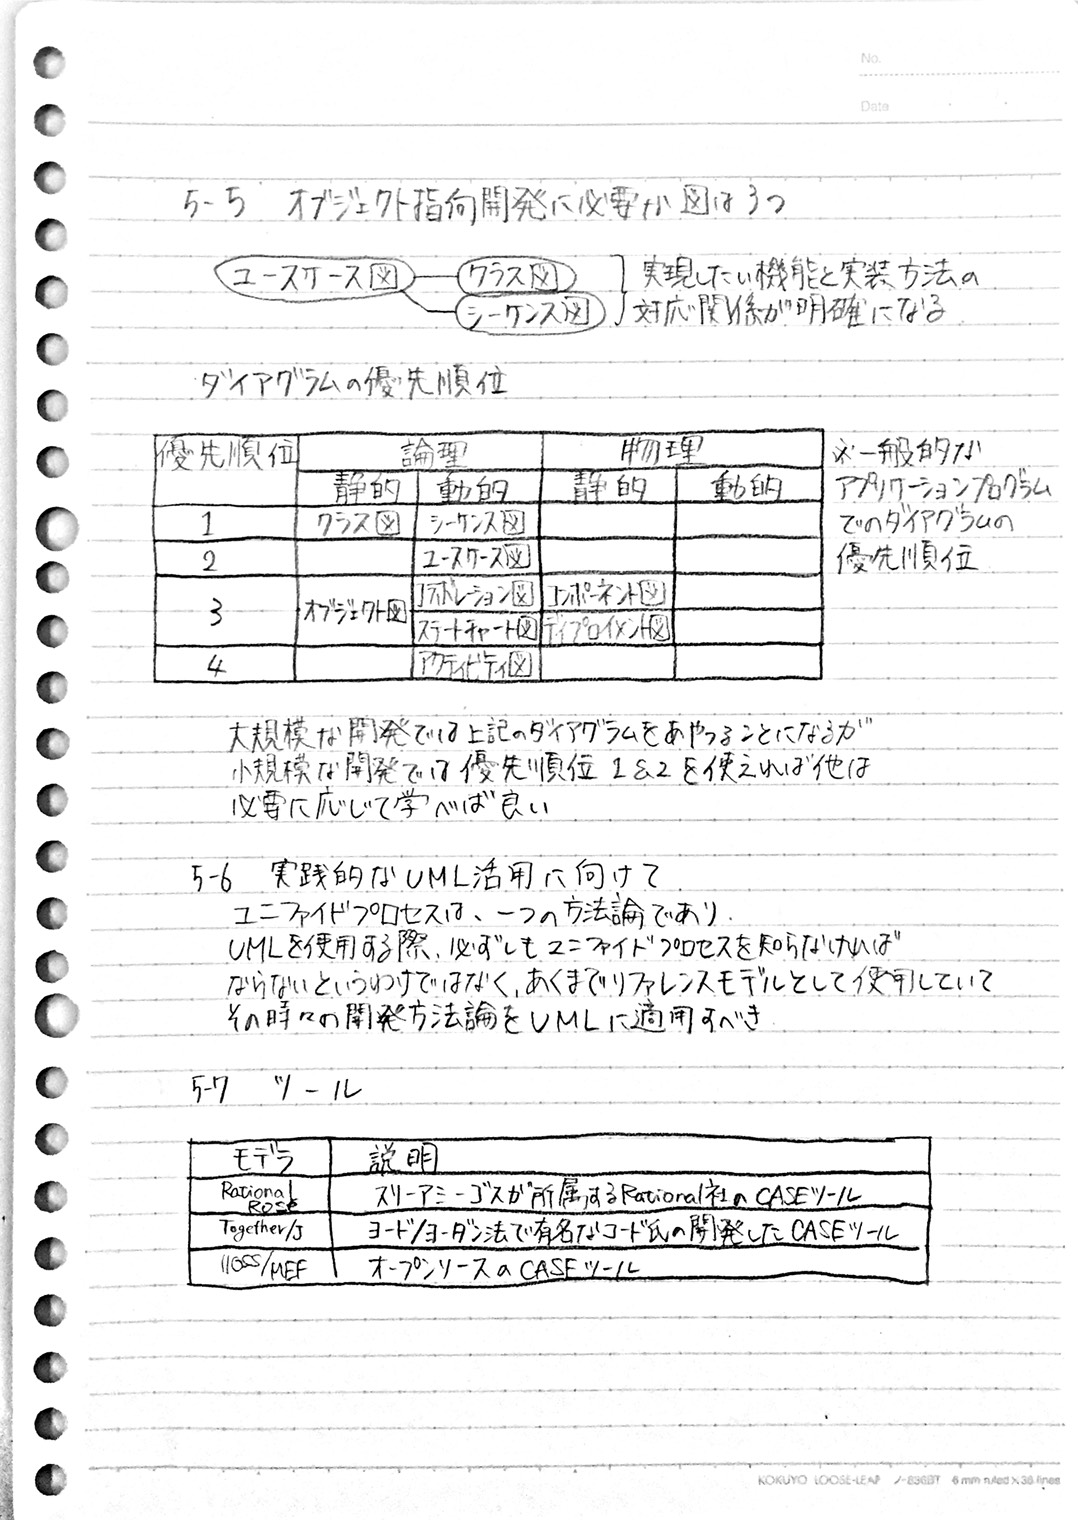 No.
Date
5-5 オブジェクト指向開発に必要な図は3つ
ユースケース図 クラス図 実現したい機能と実装方法の
シーケンス図 対応関係が明確になる
ダイアグラムの優先順位
優先順位 論理 物理
静的 動的 静的 動的
1 クラス図 シーケンス図
2 ユースケース図
3 オブジェクト図 コラボレーション図 コンポーネント図
ステートチャート図 ディプロイメント図
4 アクティビティ図
※一般的な
アプリケーションプログラム
でのダイアグラムの
優先順位
大規模な開発では上記のダイアグラムをあやつることになるが
小規模な開発では優先順位1&2を使えれば他は
必要に応じて学べば良い
5-6 実践的なUML活用に向けて
ユニファイドプロセスは、一つの方法論であり.
UMLを使用する際、必ずしもユニファイドプロセスを知らなければ
ならないというわけではなく、あくまでリファレンスモデルとして使用していて
その時々の開発方法論をUMLに適用すべき
5-7 ツール
モデラ 説明
Rational ROSE スリーアミーゴスが所属するRational社のCASEツール
Together/J ヨード/ヨーダン法で有名なコード氏の開発したCASEツール
オープンソースのCASEツール
KOKUYO LOOSE-LEAF ノ-836BT 6 mm ruled×36 lines